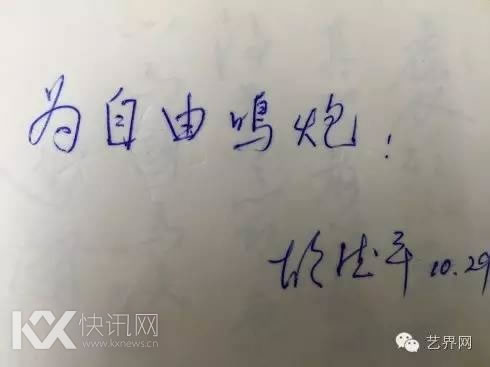 为自由鸣炮！
胡德平 10.29
KX 快讯网
www.kxnews.cn
艺界网